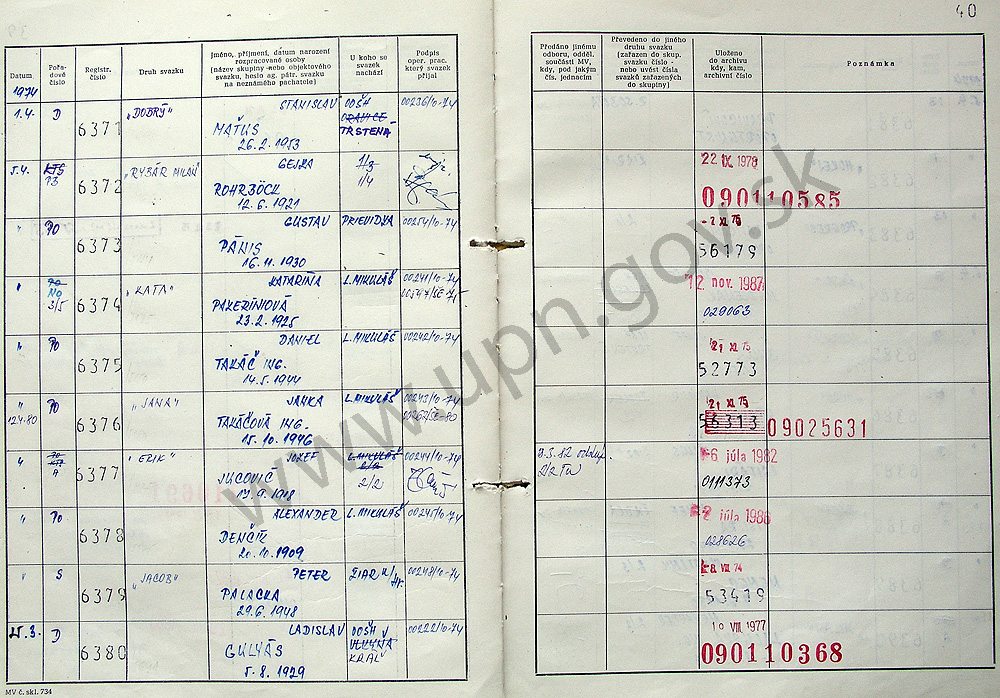 40
Datum
Pořadové číslo
Registr. číslo
Druh svazku
Jméno, příjmení, datum narození
rozpracované osoby
(název skupiny nebo objektového
svazku, heslo ag. pátr. svazku
na neznámého pachatele)
U koho se
svazek
nachází
Podpis
oper. prac.
který svazek
přijal
Předáno jinému
odboru, odděl.
součásti MV,
kdy, pod jakým
čís. jednacím
Převedeno do jiného
druhu svazku
(zařazen do skup.
svazku číslo -
nebo uvést čísla
svazků zařazených
do skupiny)
Uloženo
do archivu
kdy, kam,
archivní číslo
Poznámka
1974
1.4. D 6371 "DOBRÝ" STANISLAV OOŠH 00236/10-74
MAŤUS TRSTENA
26.2.1953
5.4. 6372 "RYBÁR MILAN" GEJZA 1/3
ROHRBÖCK 1/4
12.6.1921
22 IX 1978
090110585
" PO 6373 GUSTAV PRIEVIDZA 00254/10-74
PÁNIS
16.11.1930
-2 XII. 75
56179
" 3/5 6374 "KATA" KATARÍNA L. MIKULÁŠ 00241/10-74
PAKERÍNIOVÁ
23.2.1925
12. nov. 1987
029063
" PO 6375 DANIEL L. MIKULÁŠ 00242/10-74
TAKÁČ ING.
14.5.1944
21 XI 75
52773
" PO 6376 "JANA" JANKA L. MIKULÁŠ 00243/10-74
TAKÁČOVÁ ING.
15.10.1946
21 XI 75
56313 09025631
" A 6377 "ERIK" JOZEF L. MIKULÁŠ 00244/10-74
2/2
17.9.1918
2/2
-6 júla 1982
0111373
" PO 6378 ALEXANDER L. MIKULÁŠ 00245/10-74
DENČÍK
20.10.1909
2 júla 1986
028626
" S 6379 "JACOB" PETER ŽIAR n/Hr. 00248/10-74
PALACKA
29.6.1948
8 VIII 74
53419
25.3. D 6380 LADISLAV OOŠH 00222/10-74
GULYÁS KRÁĽ
5.8.1929
10 VIII 1977
090110368
MV č. skl. 734
www.upn.gov.sk